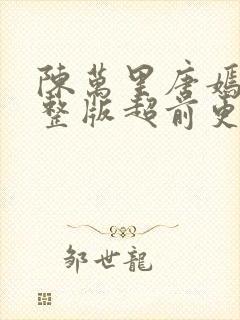 陳萬里唐嫣
整版超前更
邹世龍